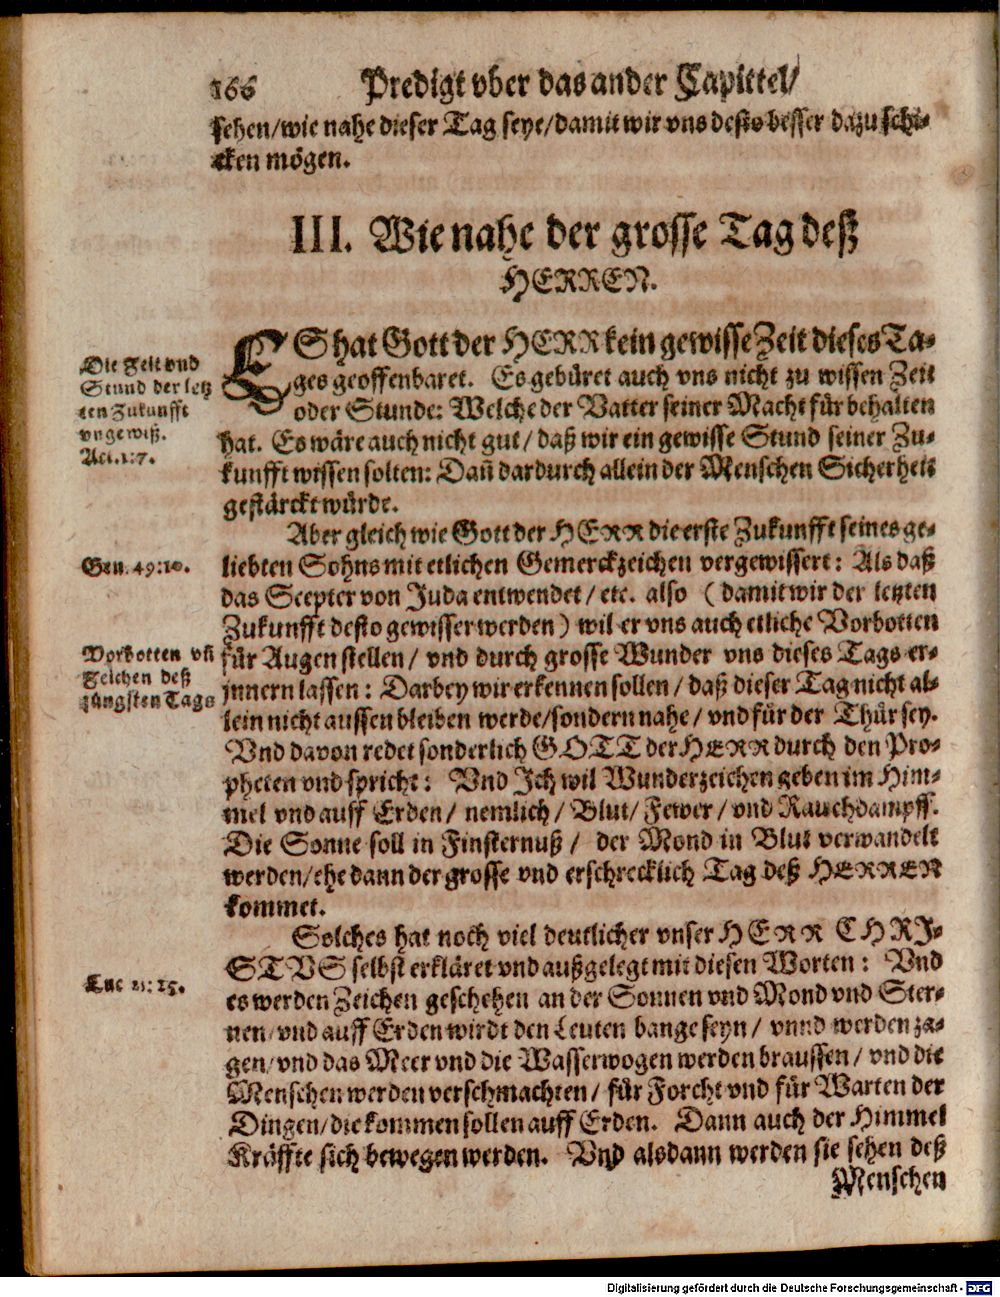 166 Predigt vber das ander Capittel/
sehen/wie nahe dieser Tag seye/damit wir vns desto besser dazu schi-
cken mögen.
III. Wie nahe der grosse Tag deß
HERREN.
Die Zeit vnd
Stund der letz
ten Zukunfft
vngewiß.
Act. 1:7.
ES hat Gott der HERR kein gewisse Zeit dieses Ta-
ges geoffenbaret. Es gebüret auch vns nicht zu wissen Zeit
oder Stunde: Welche der Vatter seiner Macht für behalten
hat. Es wäre auch nicht gut/ daß wir ein gewisse Stund seiner Zu-
kunfft wissen solten: Dañ dardurch allein der Menschen Sicherheit
gestärckt würde.
Aber gleich wie Gott der HERR die erste Zukunfft seines ge-
Gen. 49:10.
liebten Sohns mit etlichen Gemerckzeichen vergewissert: Als daß
das Scepter von Juda entwendet/ etc. also (damit wir der letzten
Zukunfft desto gewisser werden) wil er vns auch etliche Vorbotten
Vorbotten vñ
Zeichen deß
jüngsten Tags
für Augen stellen/ vnd durch grosse Wunder vns dieses Tags er-
innern lassen: Darbey wir erkennen sollen/ daß dieser Tag nicht al-
lein nicht aussen bleiben werde/sondern nahe/ vnd für der Thür sey.
Vnd davon redet sonderlich GOTT der HERR durch den Pro-
pheten vnd spricht: Vnd Ich wil Wunderzeichen geben im Him-
mel vnd auff Erden/ nemlich/ Blut/ Fewer/ vnd Rauchdampff.
Die Sonne soll in Finsternuß/ der Mond in Blut verwandelt
werden/ehe dann der grosse vnd erschrecklich Tag deß HERREN
kommet.
Solches hat noch viel deutlicher vnser HERR CHRI-
STVS selbst erkläret vnd außgelegt mit diesen Worten: Vnd
Luc 21:25.
es werden Zeichen geschehen an der Sonnen vnd Mond vnd Ster-
nen/vnd auff Erden wirdt den Leuten bange seyn/ vnnd werden za-
gen/vnd das Meer vnd die Wasserwogen werden braussen/ vnd die
Menschen werden verschmachten/ für Forcht vnd für Warten der
Dingen/die kommen sollen auff Erden. Dann auch der Himmel
Kräffte sich bewegen werden. Vnd alsdann werden sie sehen deß
Menschen
Digitalisierung gefördert durch die Deutsche Forschungsgemeinschaft - DFG